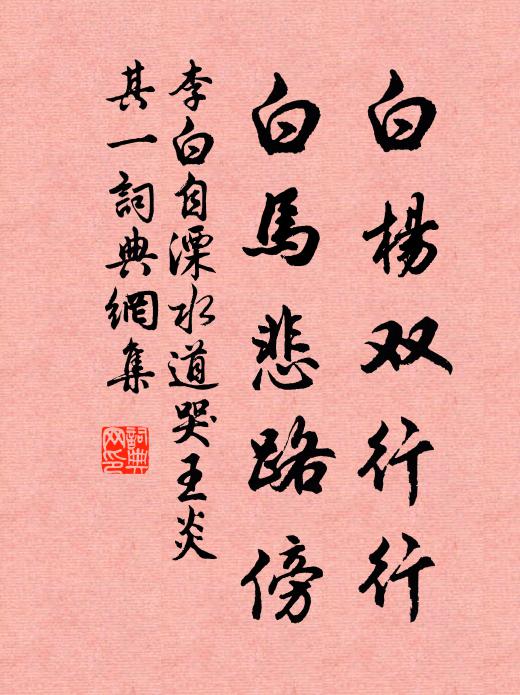 白楊双行行
白馬悲路傍
李白自溧水道哭王炎
其一詞典網集
詞典
网印